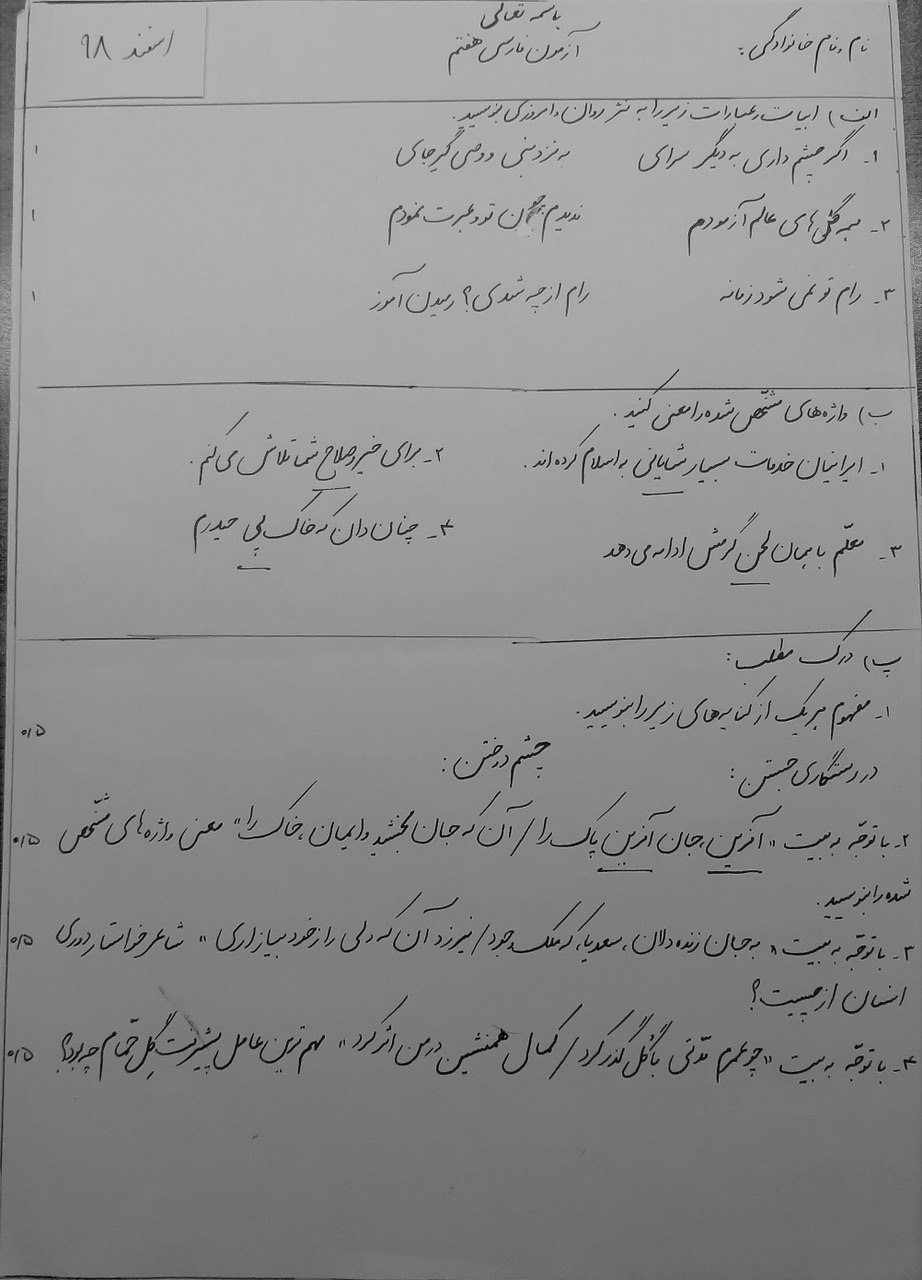 باسمه تعالی
نام و نام خانوادگی: آزمون فارسی هفتم اسفند ۹۸
الف) ابیات و عبارات زیر را به نثر روان و امروزی بنویسید.
۱- اگر چشم داری به دیگر سرای به نزد نبی و وصی گیر جای ۱
۲- همه گل‌های عالم آزمودم ندیدم چون تو و عبرت نمودم ۱
۳- رام تو نمی شود زمانه رام از چه شدی؟ رمیدن آموز ۱
ب) واژه‌های مشخّص شده را معنی کنید.
۱- ایرانیان خدمات بسیار شایانی به اسلام کرده‌اند. ۲- برای خیر و صلاح شما تلاش می‌کنم.
۳- معلّم با همان لحن گرمش ادامه می‌دهد ۴- چنان دان که خاک پی حیدرم
پ) درک مطلب:
۱- مفهوم هر یک از کنایه‌های زیر را بنویسید. ۰/۵
در رستگاری جستن: چشم دوختن:
۲- با توجّه به بیت «آفرین، جان آفرین پاک را / آن که جان بخشید و ایمان، خاک را» معنی واژه‌های مشخّص ۰/۵
شده را بنویسید.
۳- با توجّه به بیت «به جان زنده دلان، سعدیا، که ملک وجود / نیرزد آن که دلی را ز خود بیازاری» شاعر خواستار دوری ۰/۵
انسان از چیست؟
۴- با توجّه به بیت «چو عمرم مدّتی با گُل گذر کرد / کمال همنشین در من اثر کرد» مهم ترین عامل پیشرفت گِل حمّام چه بود؟ ۰/۵